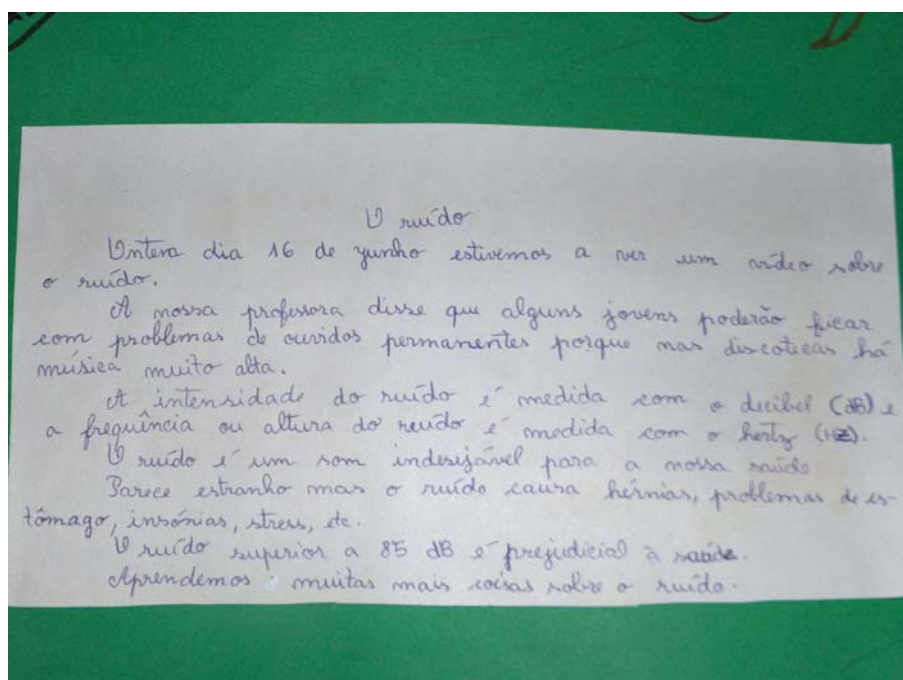 O ruído
Ontem dia 16 de yunho estivemos a ver um vídeo sobre
o ruído.
A nossa professora disse que alguns jovens poderão ficar
com problemas de ouvidos permanentes porque nas discotecas há
música muito alta.
A intensidade do ruído é medida com o decibel (dB) e
a frequência ou altura do ruído é medida com o hertz (HZ).
O ruído é um som indesejável para a nossa saúde
Parece estranho mas o ruído causa hérnias, problemas de es-
tômago, insónias, stress, etc.
O ruído superior a 85 dB é prejudicial à saúde.
Aprendemos muitas mais coisas sobre o ruído.